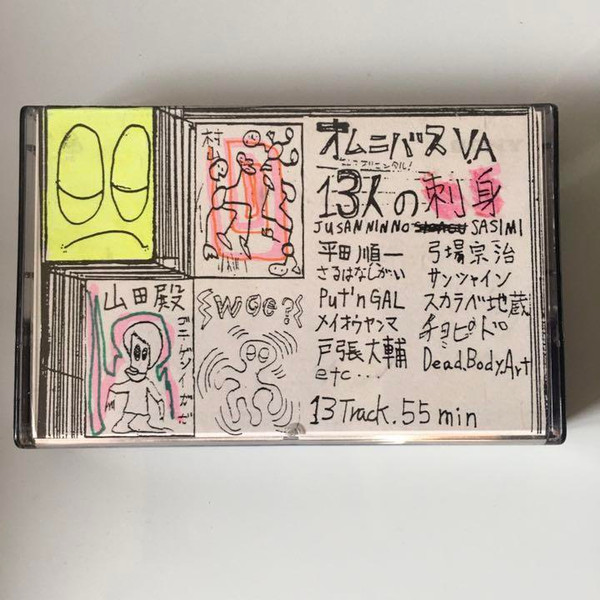 村山
オムニバス V.A
13人の刺身
JUSANNINNO SASIMI
平田順一
さるはなしがい
Put'n GAL
メイオウヤンマ
戸張大輔
etc...
弓場宗治
サンシャイン
スカラベ地蔵
チョピド
Dead.Body.Art
13 Track. 55 min
山田殿